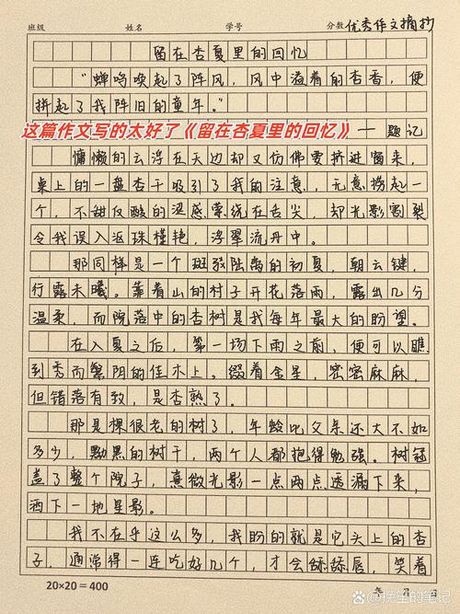 班级 姓名 学号 分数 优秀作文摘抄
留在杏夏里的回忆
“蝉鸣唤起了阵风，风中溢着的杏香，便
拼起了我陈旧的童年。”
这篇作文写的太好了《留在杏夏里的回忆》 —题记
慵懒的云浮在天边却又仿佛要挤进窗来，
桌上的一盘杏干吸引了我的注意，无意捞起一
个，不甜反酸的涩感萦绕在舌尖，却光影割裂
令我误入返珠槿艳，浮翠流丹中。
那同样是一个斑驳陆离的初夏，朝云键，
行露未曦。靠着山的村子开花落雨，露出几分
温柔，而院落中的杏树是我每年最大的盼望。
在入夏之后，第一场下雨之前，便可以瞧
到秀而繁阴的佳木上。缀着金星，密密麻麻，
但错落有致，是杏熟了。
那是棵很老的树了，年龄比父亲还大不如
多少，黝黑的树干，两个人都抱得勉强。树冠
盖了整个院子，熹微光影一点两点透漏下来，
洒下一地星影。
我不在乎这么多，我盼的就是它头上的杏
子，通常得一连吃好几个，才会舔舔唇，笑着
20×20=400